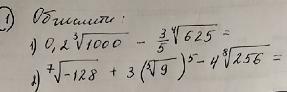 1) Обчислити:
1) 0,2 ∛1000 − 3/5 ∜625 =
2) ⁷√−128 + 3 (⁵√9)⁵ − 4 ⁸√256 =